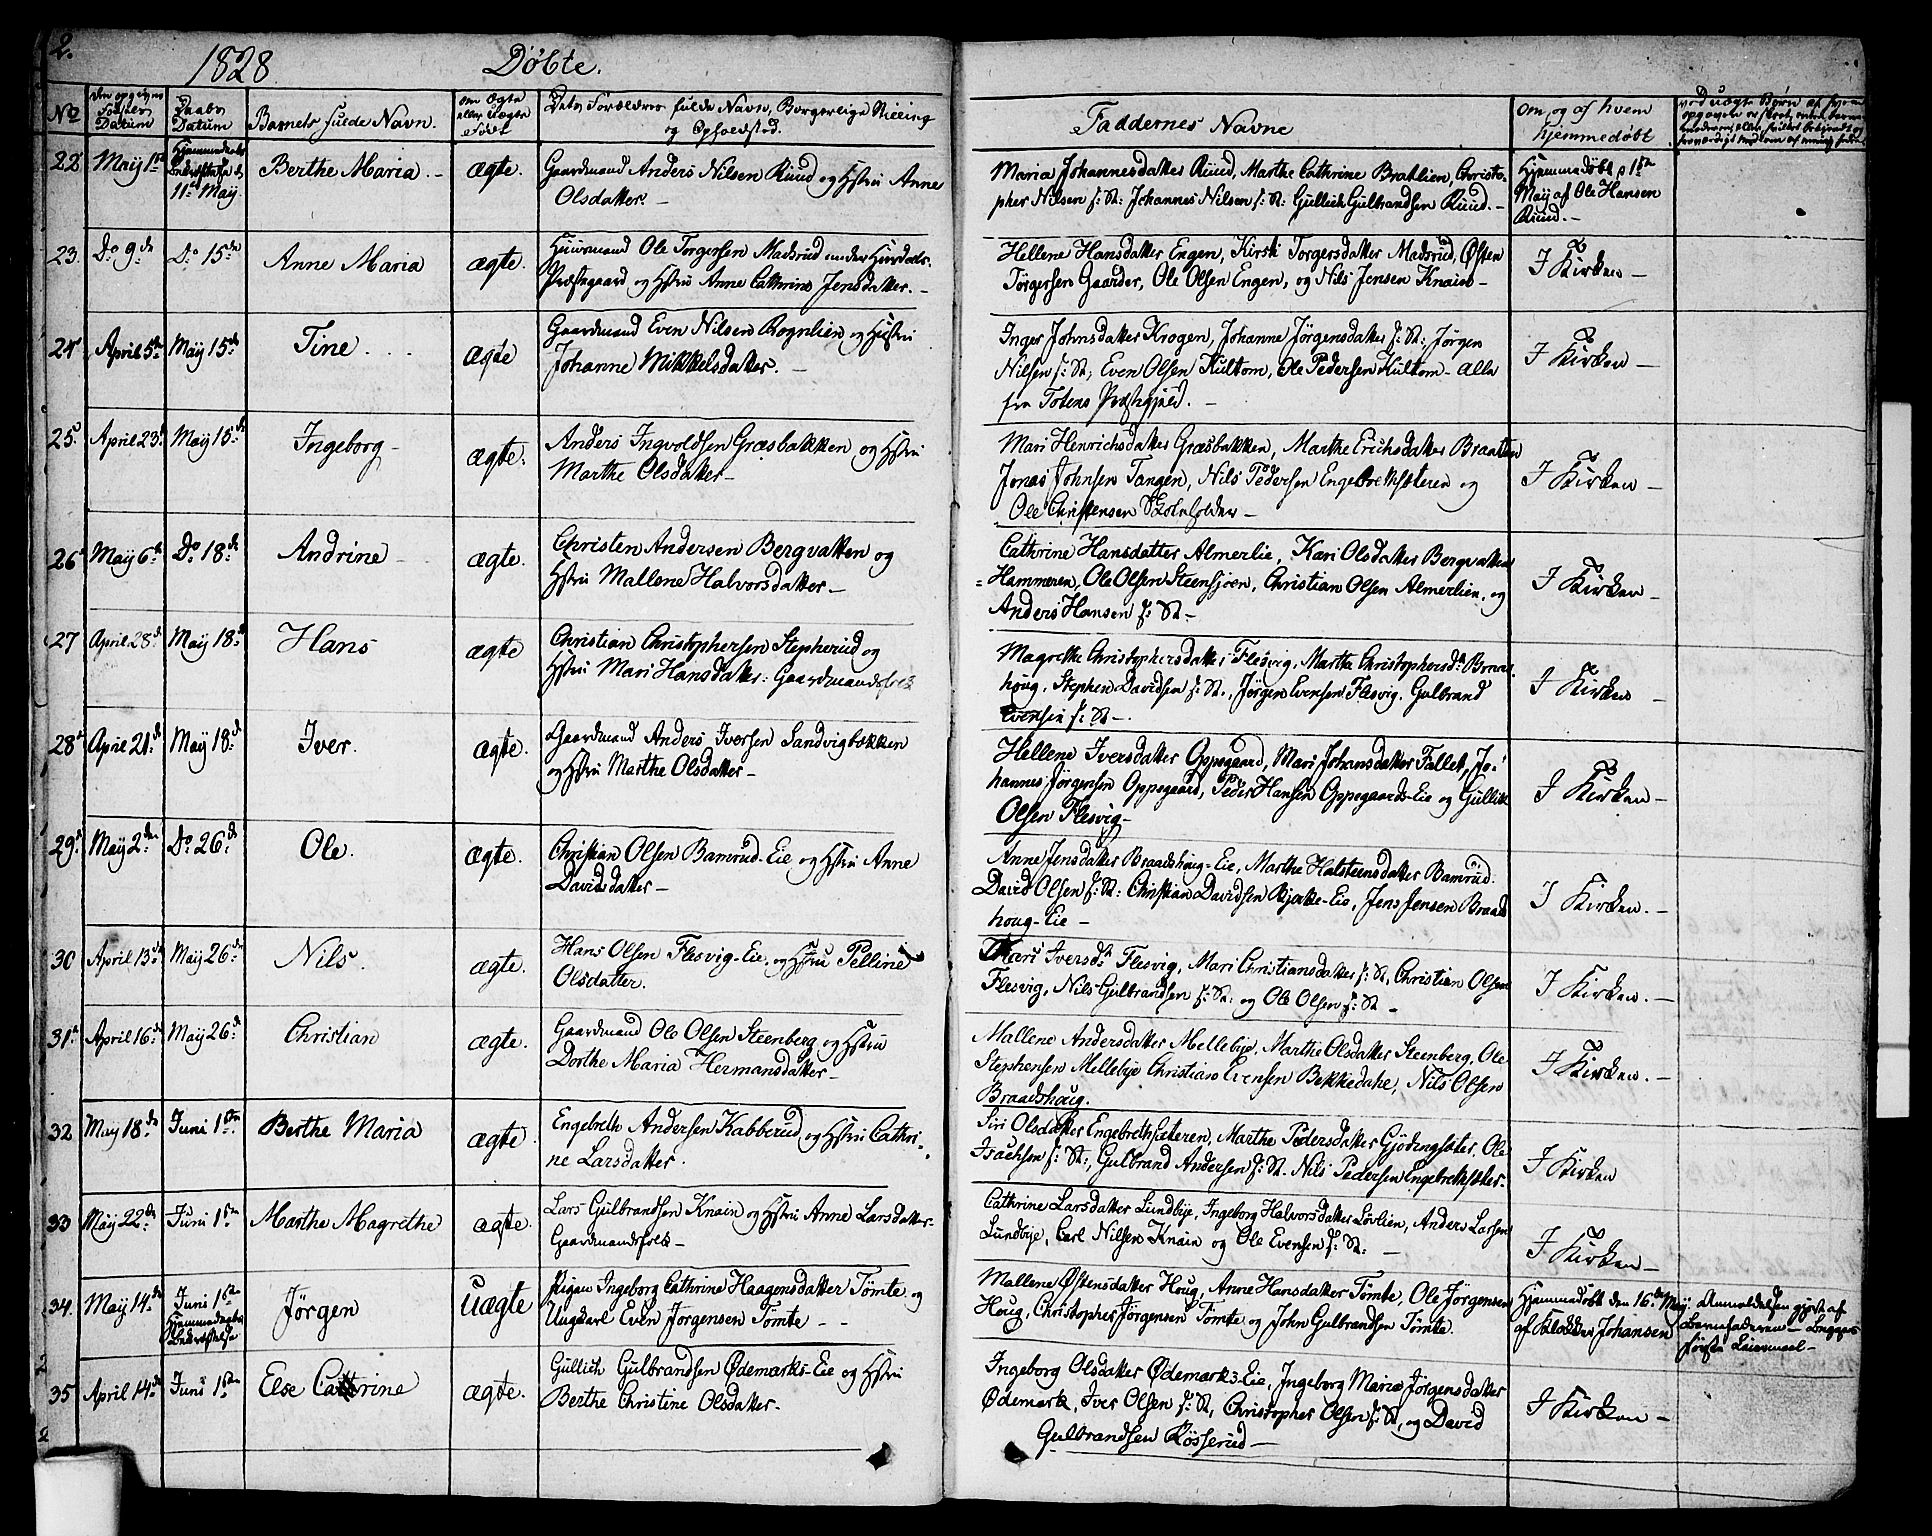 2.
1828 Døbte.
No
den opgivne Fødsels Datum
Daabs Datum
Barnets fulde Navn.
om Ægte eller Uægte Født
Dets Forældres fulde Navn, Borgerlige Stilling
og Opholdsted.
Faddernes Navne
om og af hvem
hjemmedøbt
ved Uægte Børn af hvem
22 May 1ste 11te May Berthe Maria. - ægte. Gaardmand Anders Nilsen Ruud og Hstru Anne
Olsdatter. -
Maria Johannesdatter Ruud, Marthe Cathrine Bratlien, Christo-
pher Nilsen f: St: Johannes Nilsen f: St: Gullich Gulbrandsen Ruud. -
Hjemmedøbt d 1ste
May af Ole Hansen
Ruud. -
23. Do 9de Do 15de Anne Maria ægte. Huusmand Ole Torgersen Madsrud under Hurdals-
Præstegaard og Hstru Anne Cathrine Jensdatter. -
Hellene Hansdatter Engen, Kirsti Torgersdatter Madsrud, Østen
Torgersen Gaarder, Ole Olsen Engen, og Nils Jensen Knain -
I Kirken -
24 April 5te May 15de Tine . . . ægte Gaardmand Even Nilsen Rognlien og Hustru
Johanne Mikkelsdatter. -
Inger Johnsdatter Krogen, Johanne Jørgensdatter f: St:, Jørgen
Nilsen f: St, Even Olsen Hultom, Ole Pedersen Hultom - alle
fra Totens Præstegjæld. -
I Kirken -
25 April 23d May 15de Ingeborg - ægte. Anders Ingvoldsen Græsbakken og Hstru
Marthe Olsdatter -
Mari Henrichsdatter Græsbakken, Marthe Erichsdatter Braaten
Jonas Johnsen Tangen, Nils Pedersen Engebrethsæteren og
Ole Christensen Skoleholder -
I Kirken -
26 May 6te Do 18de Andrine - ægte. Christen Andersen Bergvatten og
Hstru Mallene Halvorsdatter -
Cathrine Hansdatter Almerlie, Kari Olsdatter Bergvatten
Hammeren, Ole Olsen Steensjøen, Christian Olsen Almerlien, og
Anders Hansen f: St -
I Kirken -
27 April 28de May 18de Hans ægte Christian Christophersen Stepherud og
Hstru Mari Hansdatter: Gaardmandsfolk
Magrethe Christophersdatter Flesvig, Marthe Christophersdr Braads-
houg, Stephen Davidsen f: St., Jørgen Evensen Flesvig, Gulbrand
Evensen f: St -.
I Kirken -
28 April 21de May 18de Iver. ægte. Gaardmand Anders Iversen Sandvigbækken
og Hstru Marthe Olsdatter -
Hellene Iversdatter Oppegaard, Mari Johansdatter Fallet, Jo-
hannes Jørgensen Oppegaard, Peder Hansen Oppegaards-Eie og Gullik
Olsen Flesvig -
I Kirken -
29 May 2den Do 26de Ole. ægte. Christian Olsen Bamrud-Eie og Hstru Anne
Davidsdatter -
Anne Jensdatter Braadshoug-Eie, Marthe Halsteensdatter Bamrud.
David Olsen f: St: Christian Davidsen Bjerke-Eie, Jens Jensen Braads
houg-Eie -
I Kirken. -
30 April 13de May 26de Nils. ægte. Hans Olsen Flesvig-Eie, og Hstru Pelline
Olsdatter.
Mari Iversdr Flesvig, Mari Christiansdatter f: St, Christian Olsen
Flesvig, Nils Gulbrandsen f: St: og Ole Olsen f: St -
I Kirken. -
31 April 16de May 26de Christian ægte. Gaardmand Ole Olsen Steenberg og Hstru
Dorthe Maria Hermansdatter -
Mallene Andersdatter Mellebye, Marthe Olsdatter Steenberg, Ole
Stephensen Mellebye Christian Evensen Bekkedahl, Nils Olsen
Braadshoug.
I Kirken. -
32 May 18de Juni 1ste Berthe Maria ægte. Engebreth Andersen Kabberud og Hstru Cathri-
ne Larsdatter.
Siri Olsdatter Engebrethsæteren, Marthe Pedersdatter Gjødingsæter, Ole
Isachsen f: St:, Gulbrand Andersen f: St. Nils Pedersen Engebrethsæter.
I Kirken
33 May 22de Juni 1ste Marthe Magrethe ægte. Lars Gulbrandsen Knain og Hstru Anne Larsdatter -
Gaardmandsfolk -
Cathrine Larsdatter Lundbye, Ingeborg Halvorsdatter Løvlien, Anders Larsen
Lundbye, Carl Nilsen Knain og Ole Evensen f: St: -
I Kirken -
34. May 14de Juni 1ste Hjemmedaabs Bekræftelse Jørgen Uægte Pigen Ingeborg Cathrine Haagensdatter Tømte og
Ungkarl Even Jørgensen Tømte - -
Mallene Østensdatter Houg, Anne Hansdatter Tømte, Ole Jørgensen
Houg, Christopher Jørgensen Tømte og John Gulbrandsen Tømte.
Hjemmedøbt den 16de May.
af Klokker Johansen
Anmeldelsen gjort af
Barnefaderen - Begges
første Leiermaal -
35 April 14de Juni 1ste Else Cathrine ægte. Gullich Gulbrandsen Ødemarks-Eie og Hstru
Berthe Christine Olsdatter -
Ingeborg Olsdatter Ødemarks-Eie, Ingeborg Maria Jørgensdatter
Ødemark, Iver Olsen f: St, Christopher Olsen f: St, og David
Gulbrandsen Røsserud -
I Kirken -